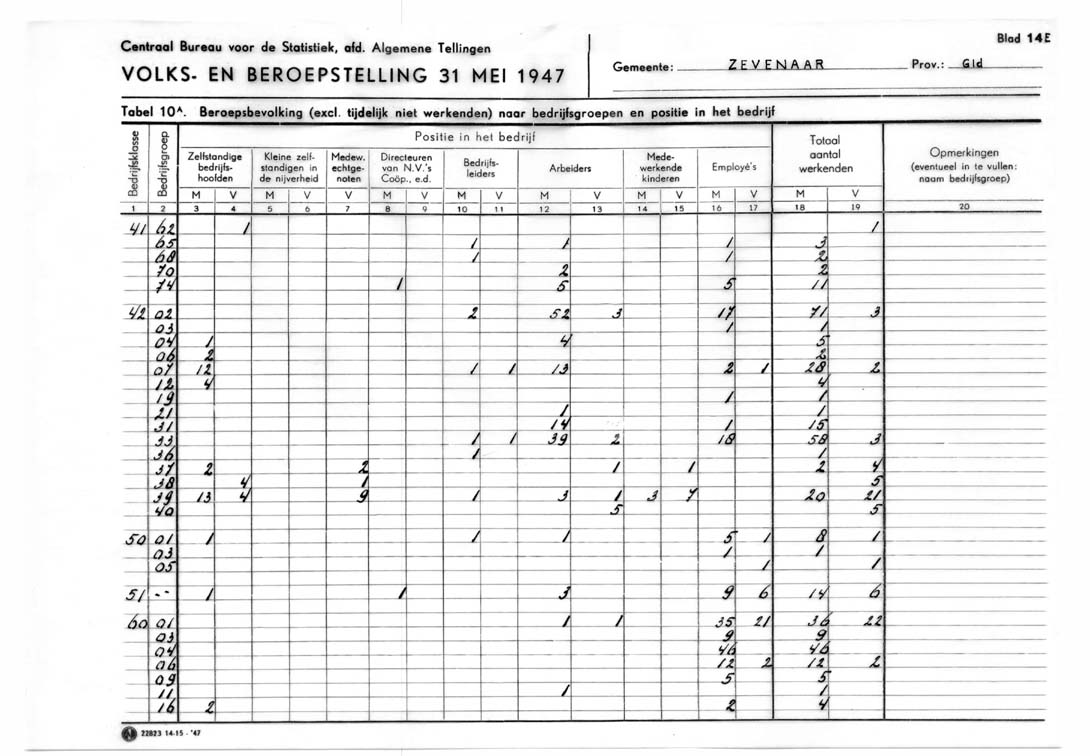 Blad 14E
Centraal Bureau voor de Statistiek, afd. Algemene Tellingen
VOLKS- EN BEROEPSTELLING 31 MEI 1947
Gemeente: ZEVENAAR Prov.: Gld
Tabel 10A. Beroepsbevolking (excl. tijdelijk niet werkenden) naar bedrijfsgroepen en positie in het bedrijf
Bedrijfsklasse Bedrijfsgroep Positie in het bedrijf Totaal aantal werkenden Opmerkingen (eventueel in te vullen: naam bedrijfsgroep)
Zelfstandige bedrijfs-hoofden Kleine zelf-standigen in de nijverheid Medew. echtge-noten Directeuren van N.V.'s Coöp., e.d. Bedrijfs-leiders Arbeiders Mede-werkende kinderen Employé's
M V M V V M V M V M V M V M V M V
1 2 3 4 5 6 7 8 9 10 11 12 13 14 15 16 17 18 19 20
41 62 1 1
65 1 1 1 3
68 1 1 2
70 2 2
74 1 5 5 11
42 02 2 52 3 17 71 3
03 1 1
04 1 4 5
06 2 2
07 12 1 1 13 2 1 28 2
12 4 4
19 1 1
21 1 1
31 14 1 15
33 1 1 39 2 18 58 3
36 1 1
37 2 2 1 1 2 4
38 4 1 5
39 13 4 9 1 3 1 3 7 20 21
40 5 5
50 01 1 1 1 5 1 8 1
03 1 1
05 1 1
51 -- 1 1 3 9 6 14 6
60 01 1 1 35 21 36 22
03 9 9
04 46 46
06 12 2 12 2
09 5 5
11 1 1
16 2 2 4
22823 14-15 - '47